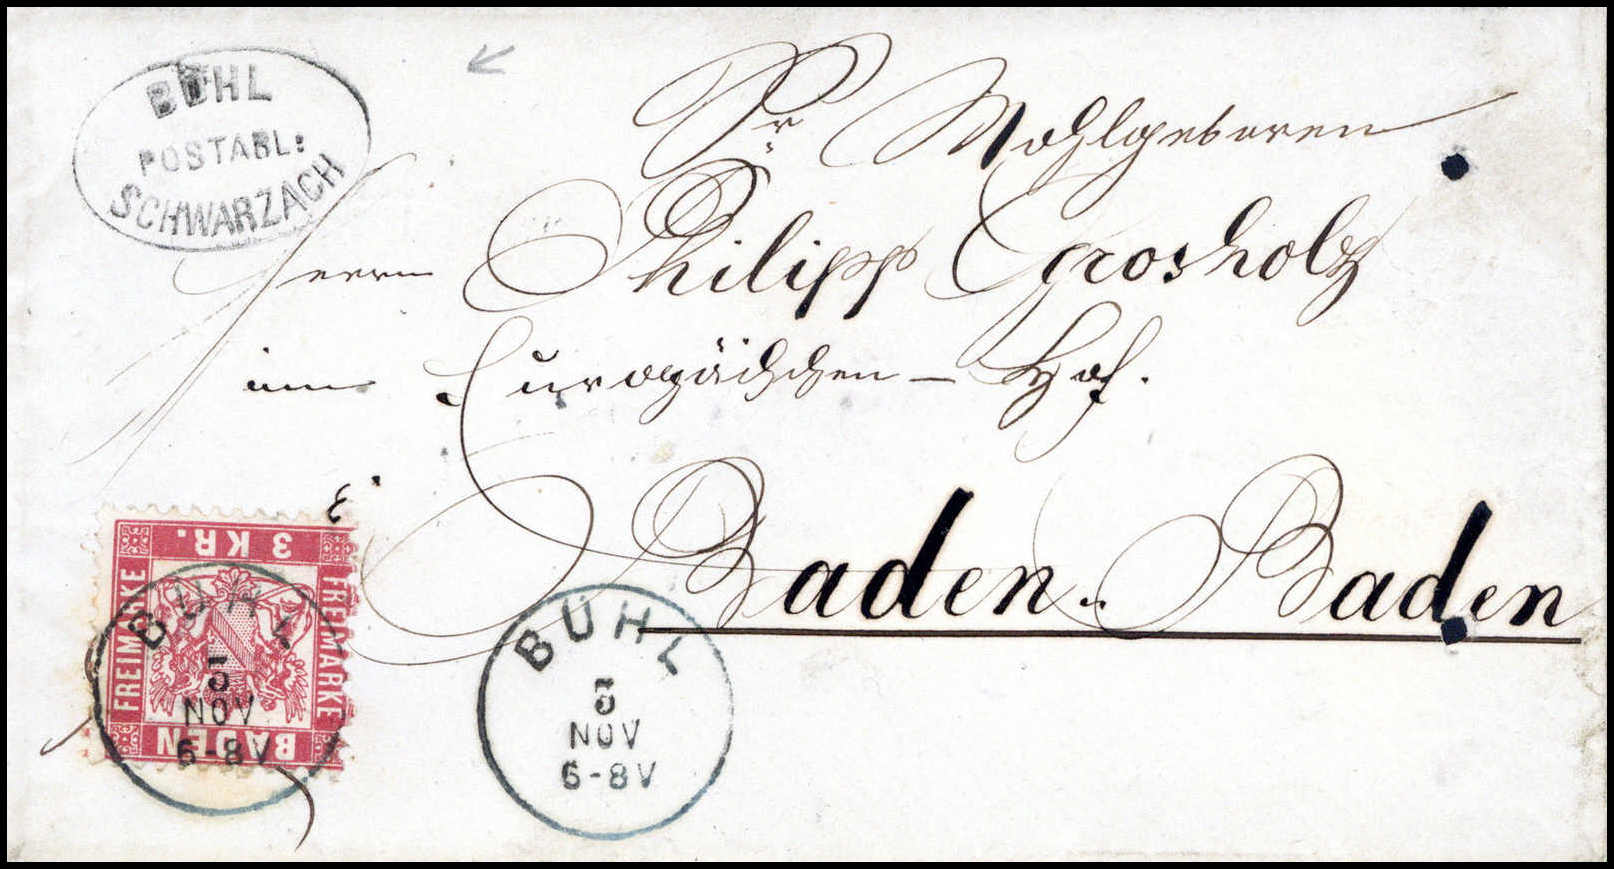 BÜHL
POSTABL:
SCHWARZACH
Sr Wohlgeboren
Herrn Philipp Grosholz
im Europäischen - Hof.
Baden-Baden
3 KR.
FREIMARKE
FREIMARKE
BADEN
BÜHL
5
NOV
6-8V
BÜHL
5
NOV
6-8V